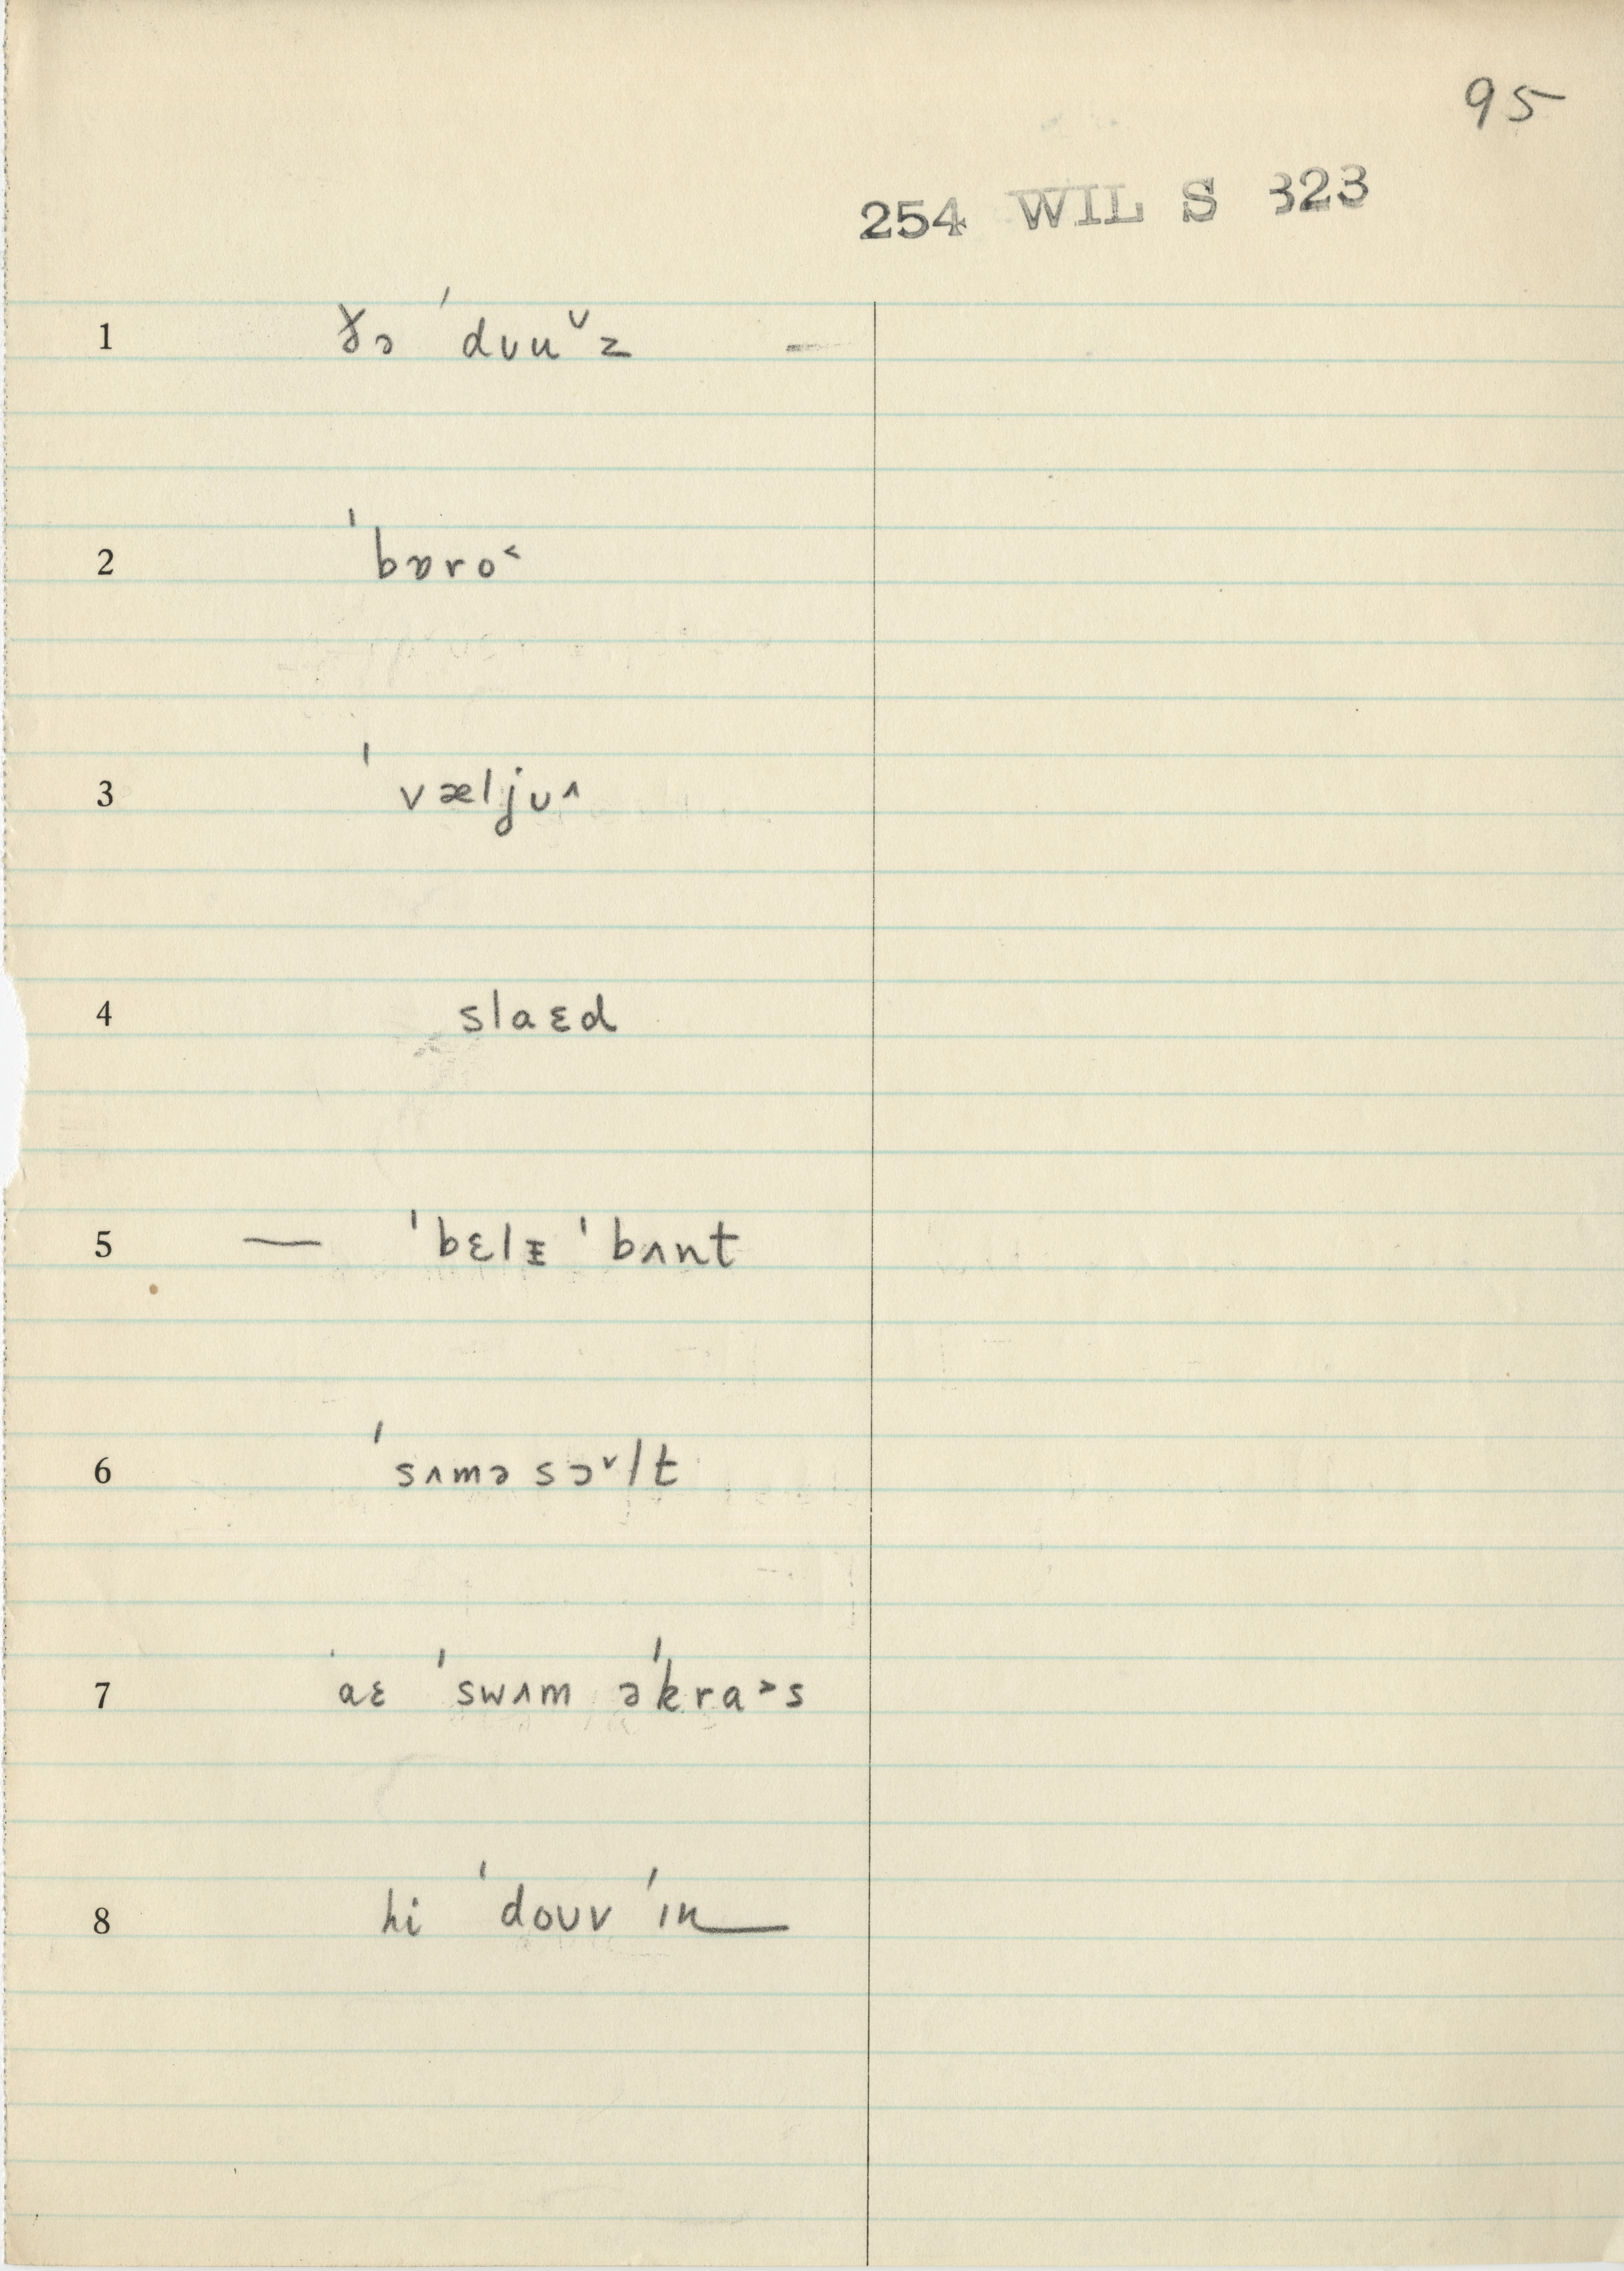 95
254 WIL S 323
1 ðə ˈdʊu˅z –
2 ˈbɒro˂
3 ˈvæljʊ˄
4 slaɛd
5 — ˈbɛlᵻ ˈbʌnt
6 ˈsʌməsɔ˅lt
7 aɛ ˈswʌm əˈkra˃s
8 hi ˈdoʊv ˈɪn—